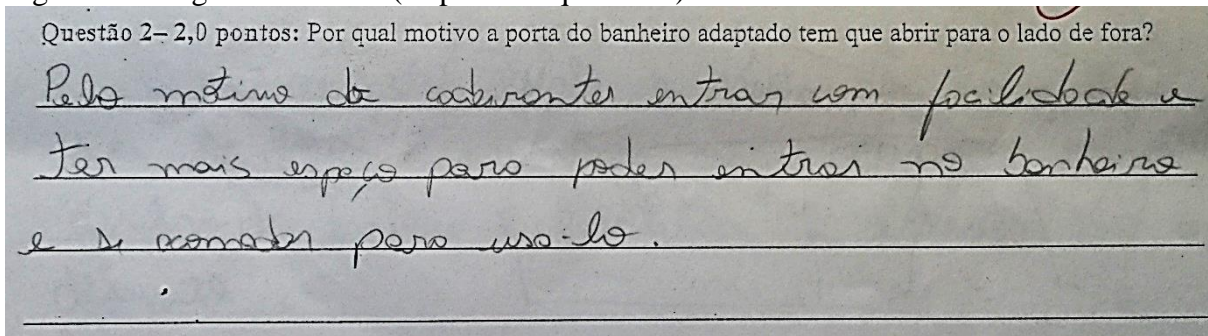 Questão 2– 2,0 pontos: Por qual motivo a porta do banheiro adaptado tem que abrir para o lado de fora?
Pelo motivo de cadeirantes entrar com facilidade e
ter mais espaço para poder entrar no banheiro
e se acomodar para usa-lo.